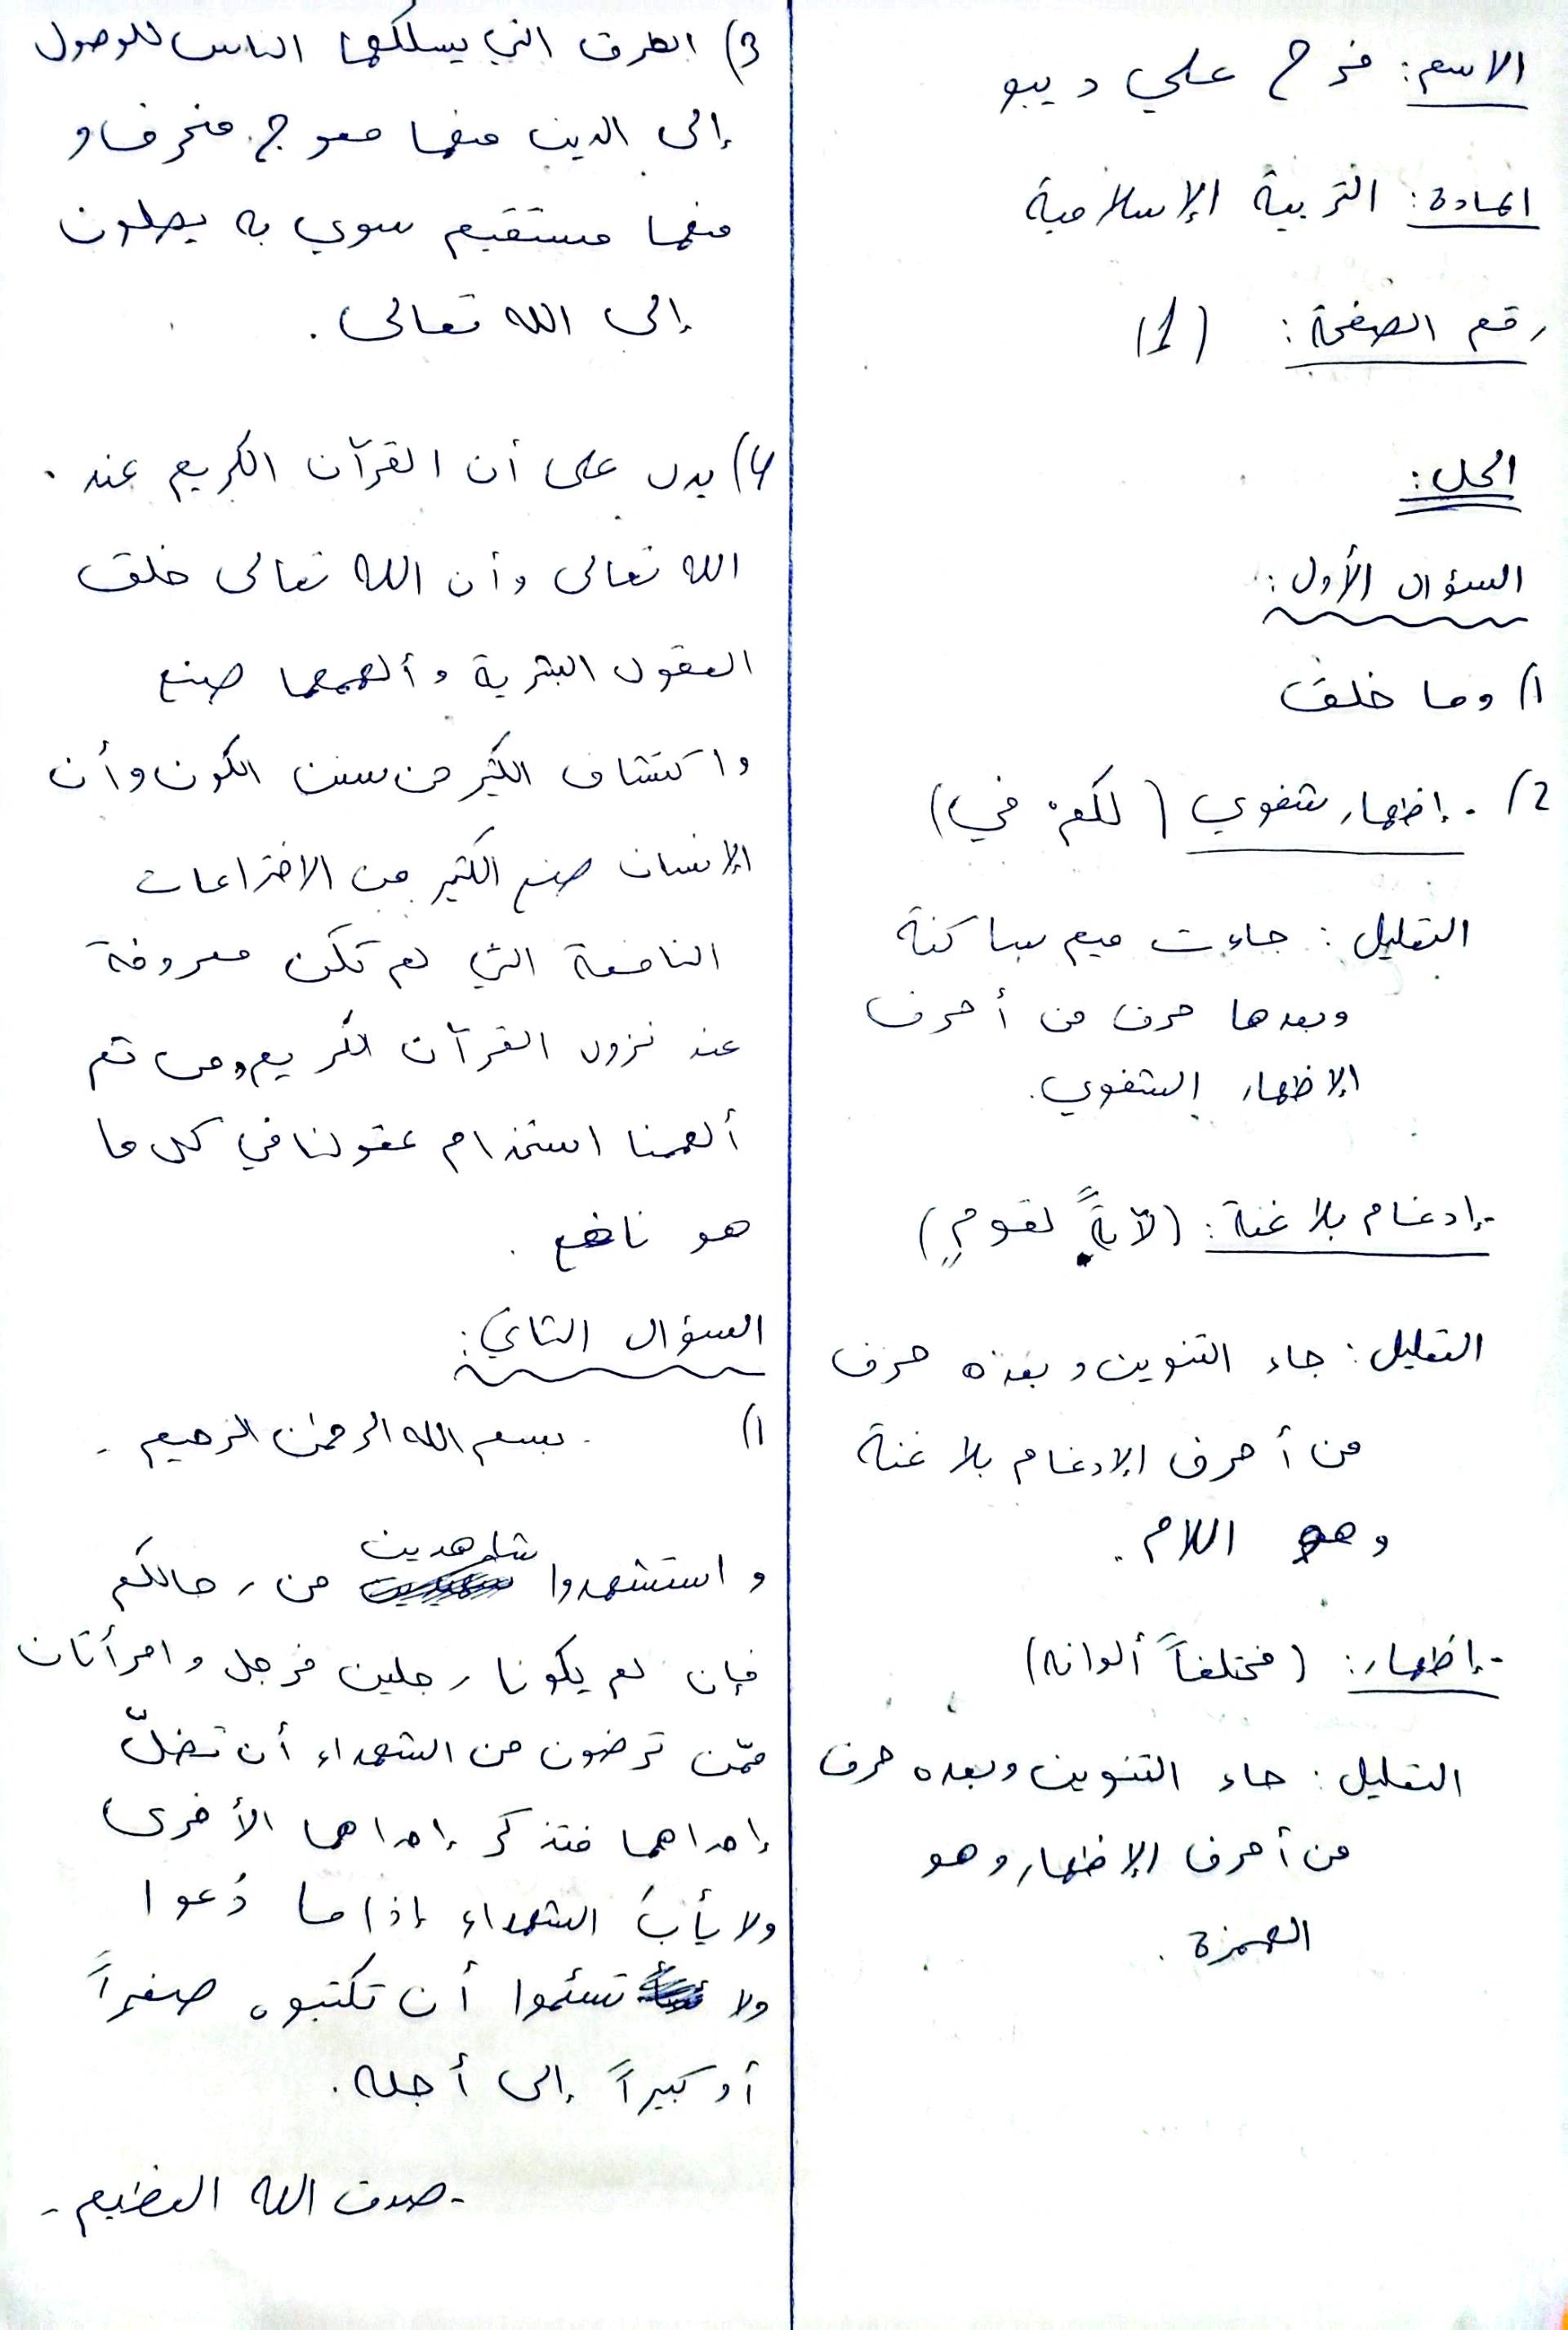 الاسم: فرح علي ديبو
المادة: التربية الإسلامية
رقم الصفحة: (1)
الحل:
السؤال الأول:
1) وما خلق
2) - إظهار شفوي (لكمْ في)
التعليل: جاءت ميم ساكنة
وبعدها حرف من أحرف
الإظهار الشفوي.
- إدغام بلا غنة: (لآيةً لقومٍ)
التعليل: جاء التنوين وبعده حرف
من أحرف الإدغام بلا غنة
وهو اللام.
- إظهار: (مختلفاً ألوانه)
التعليل: جاء التنوين وبعده حرف
من أحرف الإظهار وهو
الهمزة.
3) الطرق التي يسلكها الناس للوصول
إلى الدين منها معوج منحرف و
منها مستقيم سوي به يصلون
إلى الله تعالى.
4) يدل على أن القرآن الكريم عند
الله تعالى وأن الله تعالى خلق
العقول البشرية وألهمها صنع
واكتشاف الكثير من سنن الكون وأن
الإنسان صنع الكثير من الاختراعات
النافعة التي لم تكن معروفة
عند نزول القرآن الكريم ومن ثم
ألهمنا استخدام عقولنا في كل ما
هو نافع.
السؤال الثاني:
1) - بسم الله الرحمن الرحيم -
واستشهدوا شاهدين من رجالكم
فإن لم يكونا رجلين فرجل وامرأتان
ممّن ترضون من الشهداء أن تضلّ
إحداهما فتذكر إحداهما الأخرى
ولا يأبَ الشهداء إذا ما دُعوا
ولا تسئموا أن تكتبوه صغيراً
أو كبيراً إلى أجله.
- صدق الله العظيم -